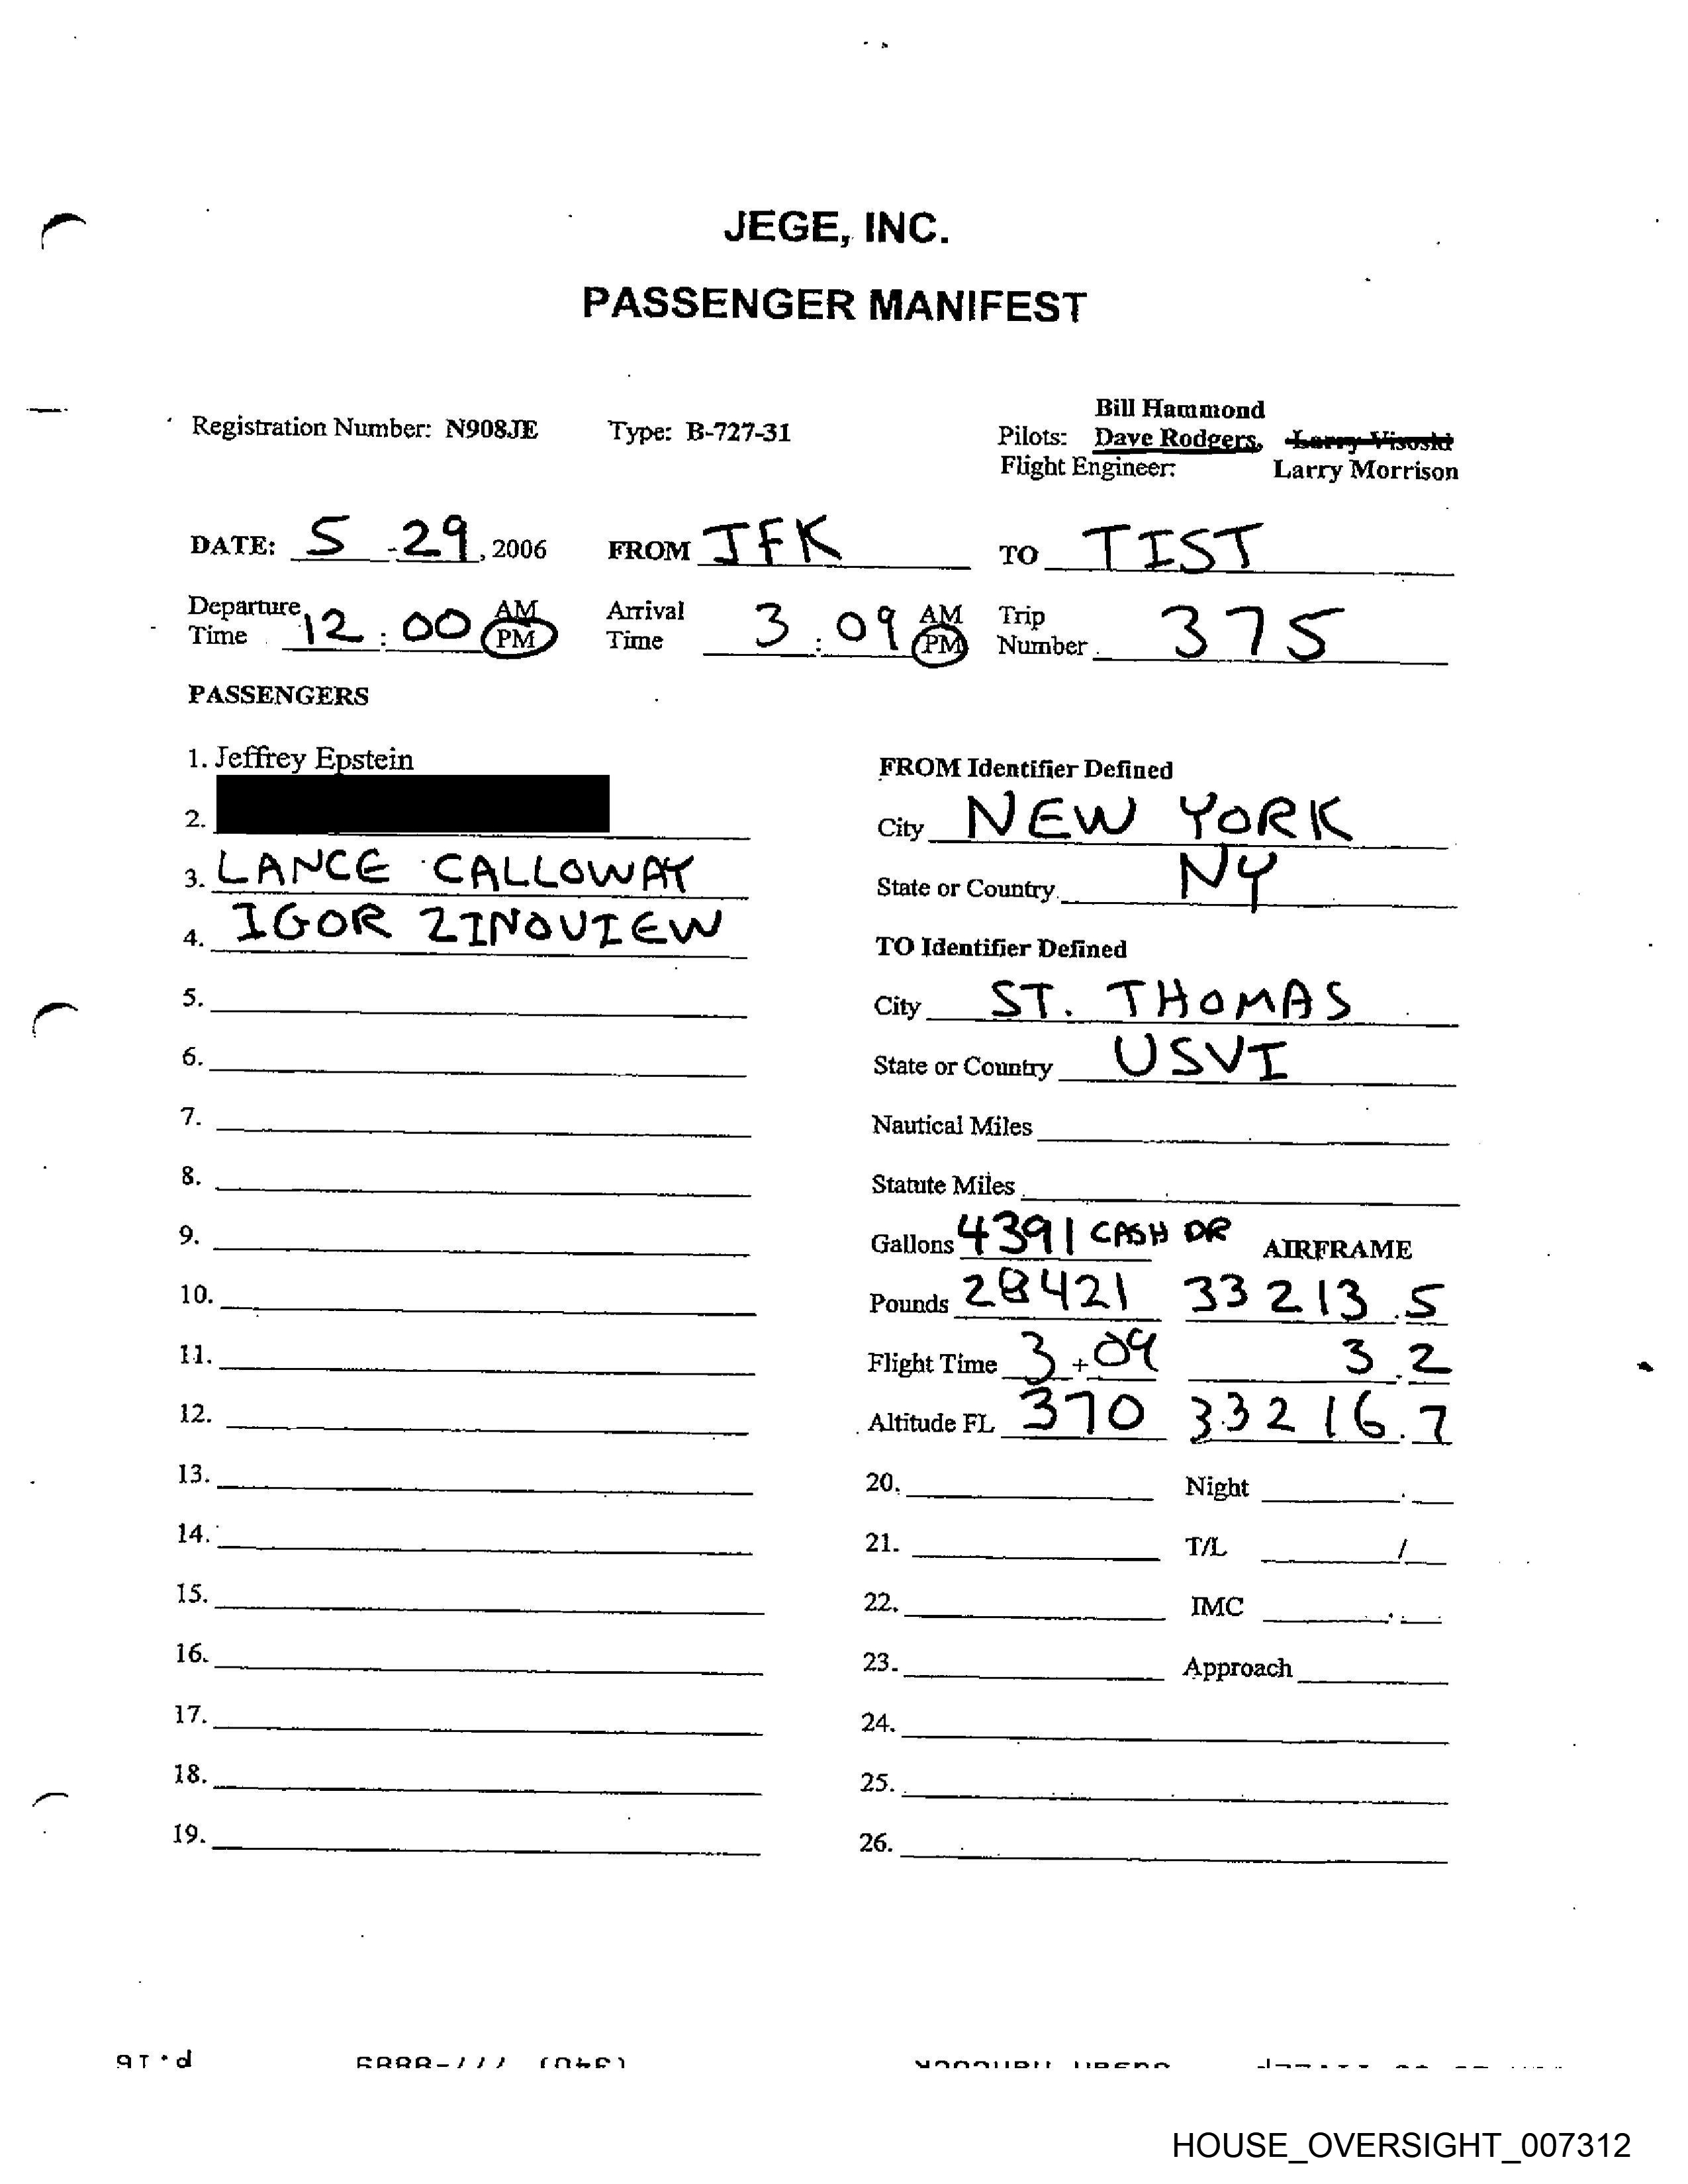 JEGE, INC.
PASSENGER MANIFEST
Bill Hammond
Registration Number: N908JE Type: B-727-31 Pilots: Dave Rodgers, Larry Visoski
Flight Engineer: Larry Morrison
DATE: 5 - 29, 2006 FROM JFK TO TIST
Departure Time 12 : 00 AM PM Arrival Time 3 : 09 AM PM Trip Number 375
PASSENGERS
1. Jeffrey Epstein
2.
3. LANCE CALLOWAY
4. IGOR ZINOVIEW
5.
6.
7.
8.
9.
10.
11.
12.
13.
14.
15.
16.
17.
18.
19.
FROM Identifier Defined
City NEW YORK
State or Country NY
TO Identifier Defined
City ST. THOMAS
State or Country USVI
Nautical Miles
Statute Miles
Gallons 4391 CASH DR AIRFRAME
Pounds 28421 33213.5
Flight Time 3+09 3.2
Altitude FL 370 33216.7
20. Night .
21. T/L /
22. IMC .
23. Approach
24.
25.
26.
p.16
HOUSE_OVERSIGHT_007312